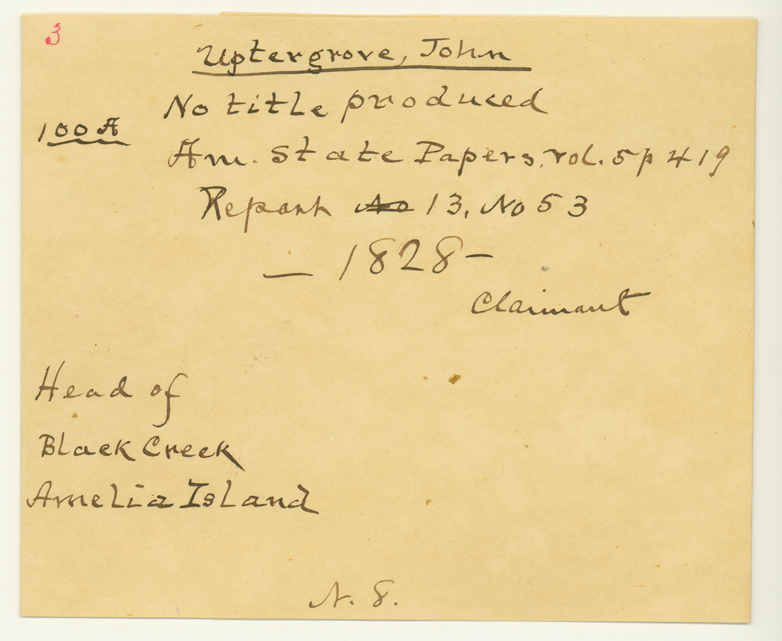 3
Uptergrove, John
No title produced
100 A
Am. State Papers, vol. 5 p 419
Report No 13, No 53
— 1828 —
Claimant
Head of
Black Creek
Amelia Island
N. 8.